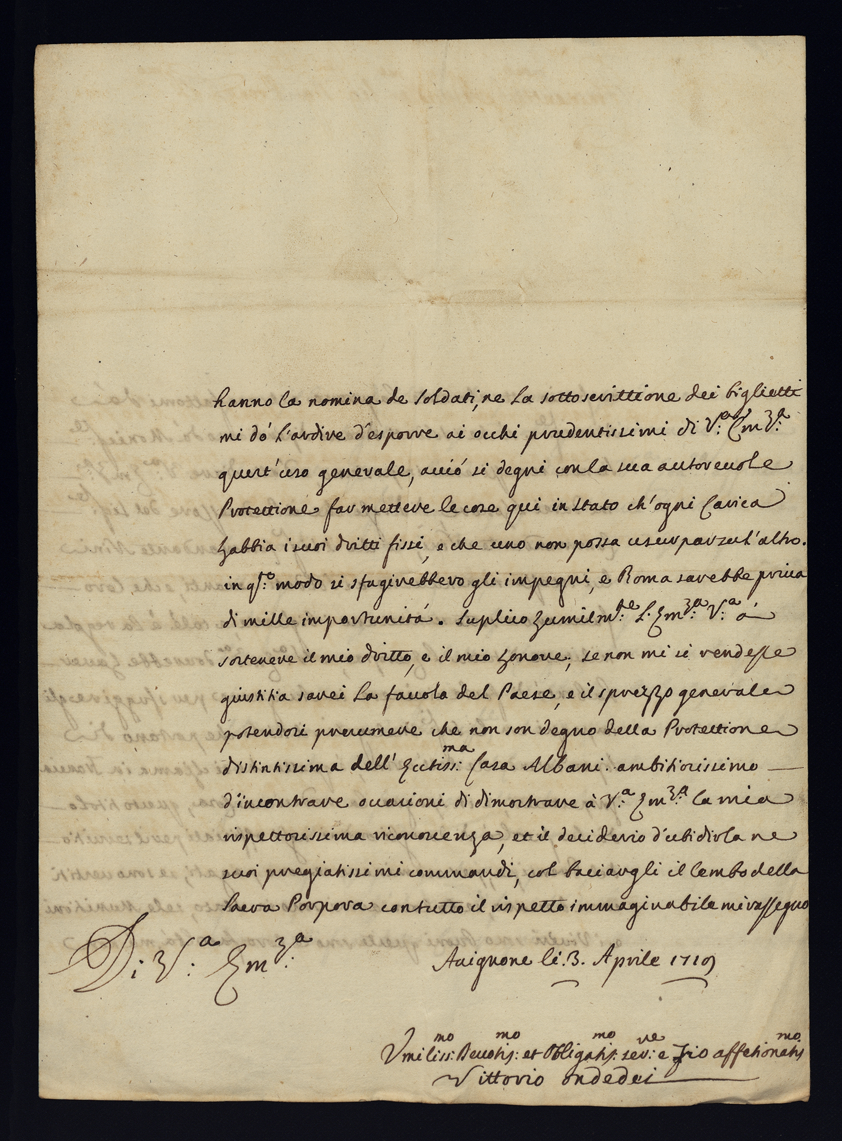 hanno la nomina de soldati, ne la sottoscrittione dei biglietti
mi dó l'ardire d'esporre ai occhi prudentissimi di V.ª Em.ª
quest'uso generale, acció si degni con la sua autoreuole
Protettione far mettere le cose qui in stato ch'ogni Carica
habbia i suoi dritti fissi, e che uno non possa usurparsu l'altro.
in q.sto modo si sfugirebbero gli impegni, e Roma sarebbe priua
di mille importunitá. Suplico humilm.te l'Em.ª V.ª á
sostenere il mio dritto, e il mio honore, se non mi si rendesse
giustitia sarei la fauola del Paese, e il sprezzo generale
potendosi presumere che non son degno della Protettione
distintissima dell' Ecctiss:ma Casa Albani. ambitiosissimo
d'incontrare occasioni di dimostrare à V.ª Em.ª la mia
rispettosissima riconoscenza, et il desiderio d'ubidirla ne
suoi pregiatissimi commandi, col baciargli il lembo della
Sacra Porpora con tutto il rispetto immaginabile mi rassegno
Di V:ª Em:ª
Auignone li .3. Aprile 1719
Vmiliss:mo Deuotis:mo et Obligatis:mo ser:re e Zio affetionatis:mo
Vittorio Ondedei